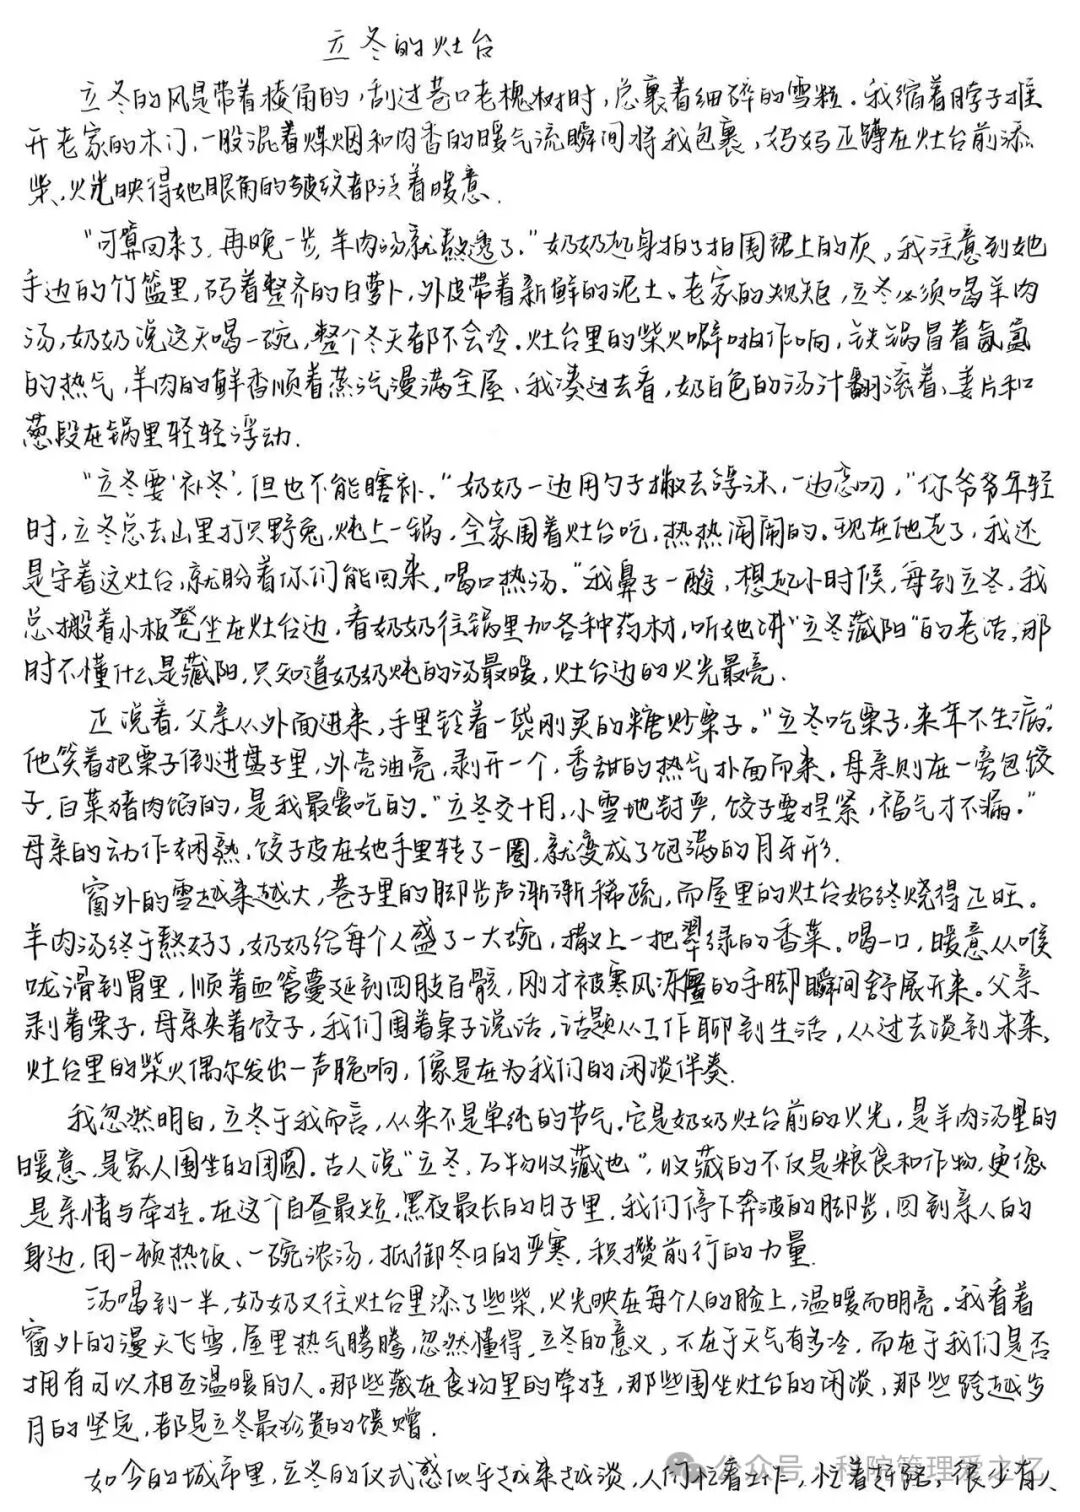 立冬的灶台
立冬的风是带着棱角的，刮过巷口老槐树时，总裹着细碎的雪粒。我缩着脖子推
开老家的木门，一股混着煤烟和肉香的暖气流瞬间将我包裹，奶奶正蹲在灶台前添
柴，火光映得她眼角的皱纹都泛着暖意。
“可算回来了，再晚一步，羊肉汤就熬透了。”奶奶起身拍了拍围裙上的灰，我注意到她
手边的竹篮里，码着整齐的白萝卜，外皮带着新鲜的泥土。老家的规矩，立冬必须喝羊肉
汤，奶奶说这天喝一碗，整个冬天都不会冷。灶台里的柴火噼啪作响，铁锅冒着氤氲
的热气，羊肉的鲜香顺着蒸汽漫满全屋、我凑过去看，奶白色的汤汁翻滚着，姜片和
葱段在锅里轻轻浮动。
“立冬要‘补冬’，但也不能瞎补。”奶奶一边用勺子撇去浮沫，一边念叨，“你爷爷年轻
时，立冬总去山里打只野兔，炖上一锅，全家围着灶台吃，热热闹闹的。现在他走了，我还
是守着这灶台，就盼着你们能回来，喝口热汤。”我鼻子一酸，想起小时候，每到立冬，我
总搬着小板凳坐在灶台边，看奶奶往锅里加各种药材，听她讲“立冬藏阳”的老话，那
时不懂什么是藏阳，只知道奶奶炖的汤最暖，灶台边的火光最亮。
正说着，父亲从外面进来，手里拎着一袋刚买的糖炒栗子。“立冬吃栗子，来年不生病”，
他笑着把栗子倒进盘子里，外壳油亮，剥开一个，香甜的热气扑面而来。母亲则在一旁包饺
子，白菜猪肉馅的，是我最爱吃的。“立冬交十月，小雪地封严，饺子要捏紧，福气才不漏。”
母亲的动作娴熟，饺子皮在她手里转了一圈，就变成了饱满的月牙形。
窗外的雪越来越大，巷子里的脚步声渐渐稀疏，而屋里的灶台始终烧得正旺。
羊肉汤终于熬好了，奶奶给每个人盛了一大碗，撒上一把翠绿的香菜。喝一口，暖意从喉
咙滑到胃里，顺着血管蔓延到四肢百骸，刚才被寒风冻僵的手脚瞬间舒展开来。父亲
剥着栗子，母亲夹着饺子，我们围着桌子说话，话题从工作聊到生活，从过去谈到未来，
灶台里的柴火偶尔发出一声脆响，像是在为我们的闲谈伴奏。
我忽然明白，立冬于我而言，从来不是单纯的节气。它是奶奶灶台前的火光，是羊肉汤里的
暖意，是家人围坐的团圆。古人说“立冬，万物收藏也”，收藏的不仅是粮食和作物，更像
是亲情与牵挂。在这个白昼最短，黑夜最长的日子里，我们停下奔波的脚步，回到亲人的
身边，用一顿热饭、一碗浓汤，抵御冬日的严寒，积攒前行的力量。
汤喝到一半，奶奶又往灶台里添了些柴，火光映在每个人的脸上，温暖而明亮。我看着
窗外的漫天飞雪，屋里热气腾腾，忽然懂得，立冬的意义，不在于天气有多冷，而在于我们是否
拥有可以相互温暖的人。那些藏在食物里的牵挂，那些围坐灶台的闲谈，那些跨越岁
月的坚定，都是立冬最珍贵的馈赠。
如今的城市里，立冬的仪式感似乎越来越淡，人们忙着工作，忙着赶路，很少有人
公众号·科院管理爱之忆